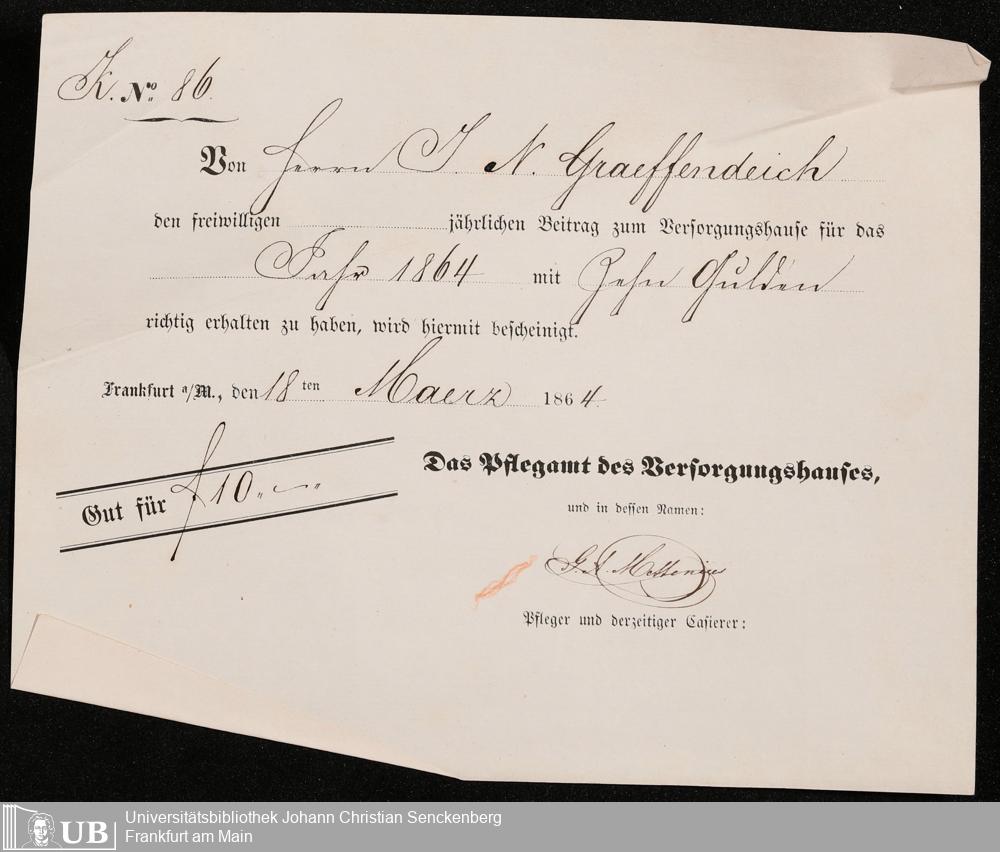 K. No. 86.
Von Herrn J. N. Graeffendeich
den freiwilligen jährlichen Beitrag zum Versorgungshause für das
Jahr 1864 mit Zehn Gulden
richtig erhalten zu haben, wird hiermit bescheinigt.
Frankfurt a/M., den 18ten Maerz 1864.
Gut für f 10 " — "
Das Pflegamt des Versorgungshauses,
und in dessen Namen:
Pfleger und derzeitiger Casierer:
UB
Universitätsbibliothek Johann Christian Senckenberg
Frankfurt am Main